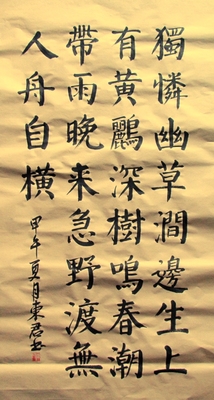 獨憐幽草澗邊生上
有黃鸝深樹鳴春潮
帶雨晚来急野渡無
人舟自橫
甲午夏月東君书